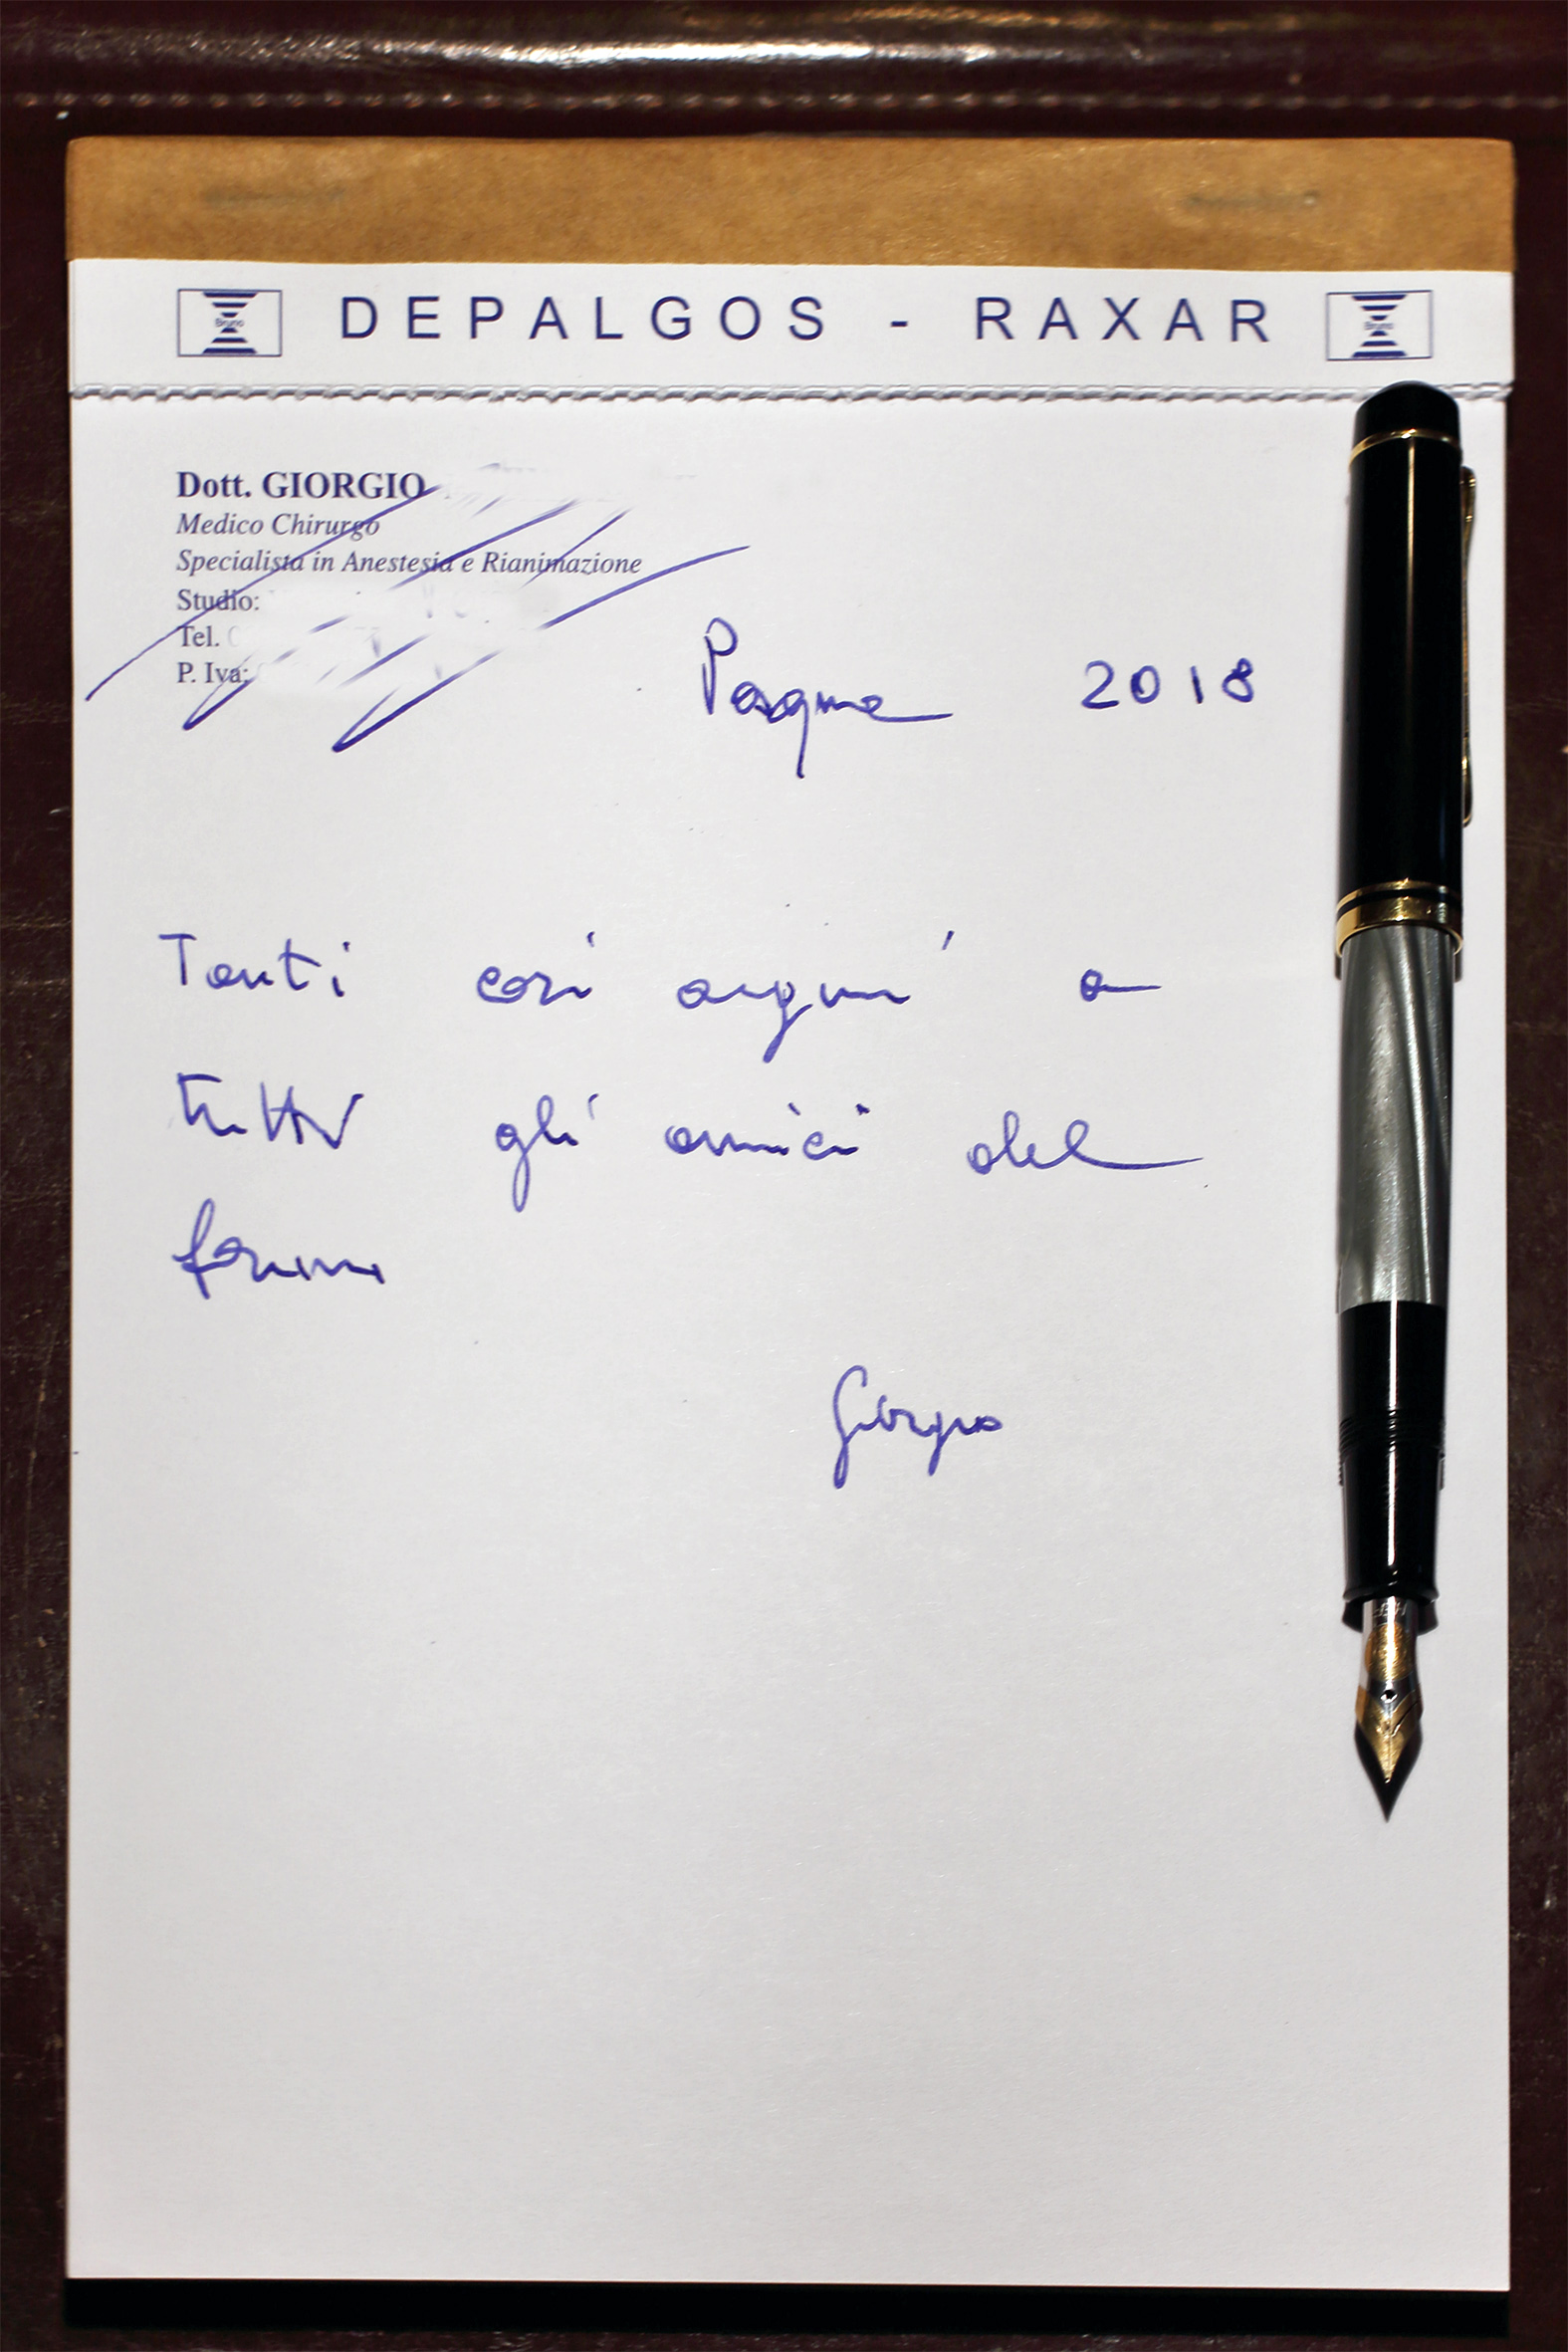 DEPALGOS - RAXAR
Dott. GIORGIO
Medico Chirurgo
Specialista in Anestesia e Rianimazione
Studio:
Tel.
P. Iva:
Pasqua 2018
Tanti cari auguri a
tutti gli amici del
forum
Giorgio